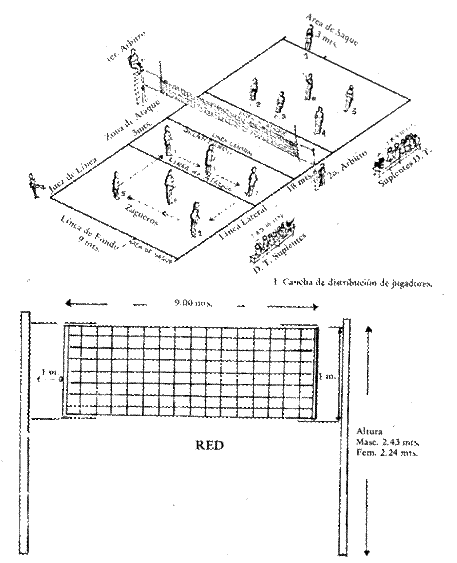 Area de Saque
3 mts.
1er. Arbitro
Zona de Ataque
3mts.
Juez de Línea
Zagueros
Línea de Fondo
9 mts.
Línea Lateral
18 mts.
2o. Arbitro
Suplentes D. T.
D. T. Suplentes
1 Cancha de distribución de jugadores.
9.00 mts.
1 m.
1 m.
RED
Altura
Masc. 2.43 mts.
Fem. 2.24 mts.